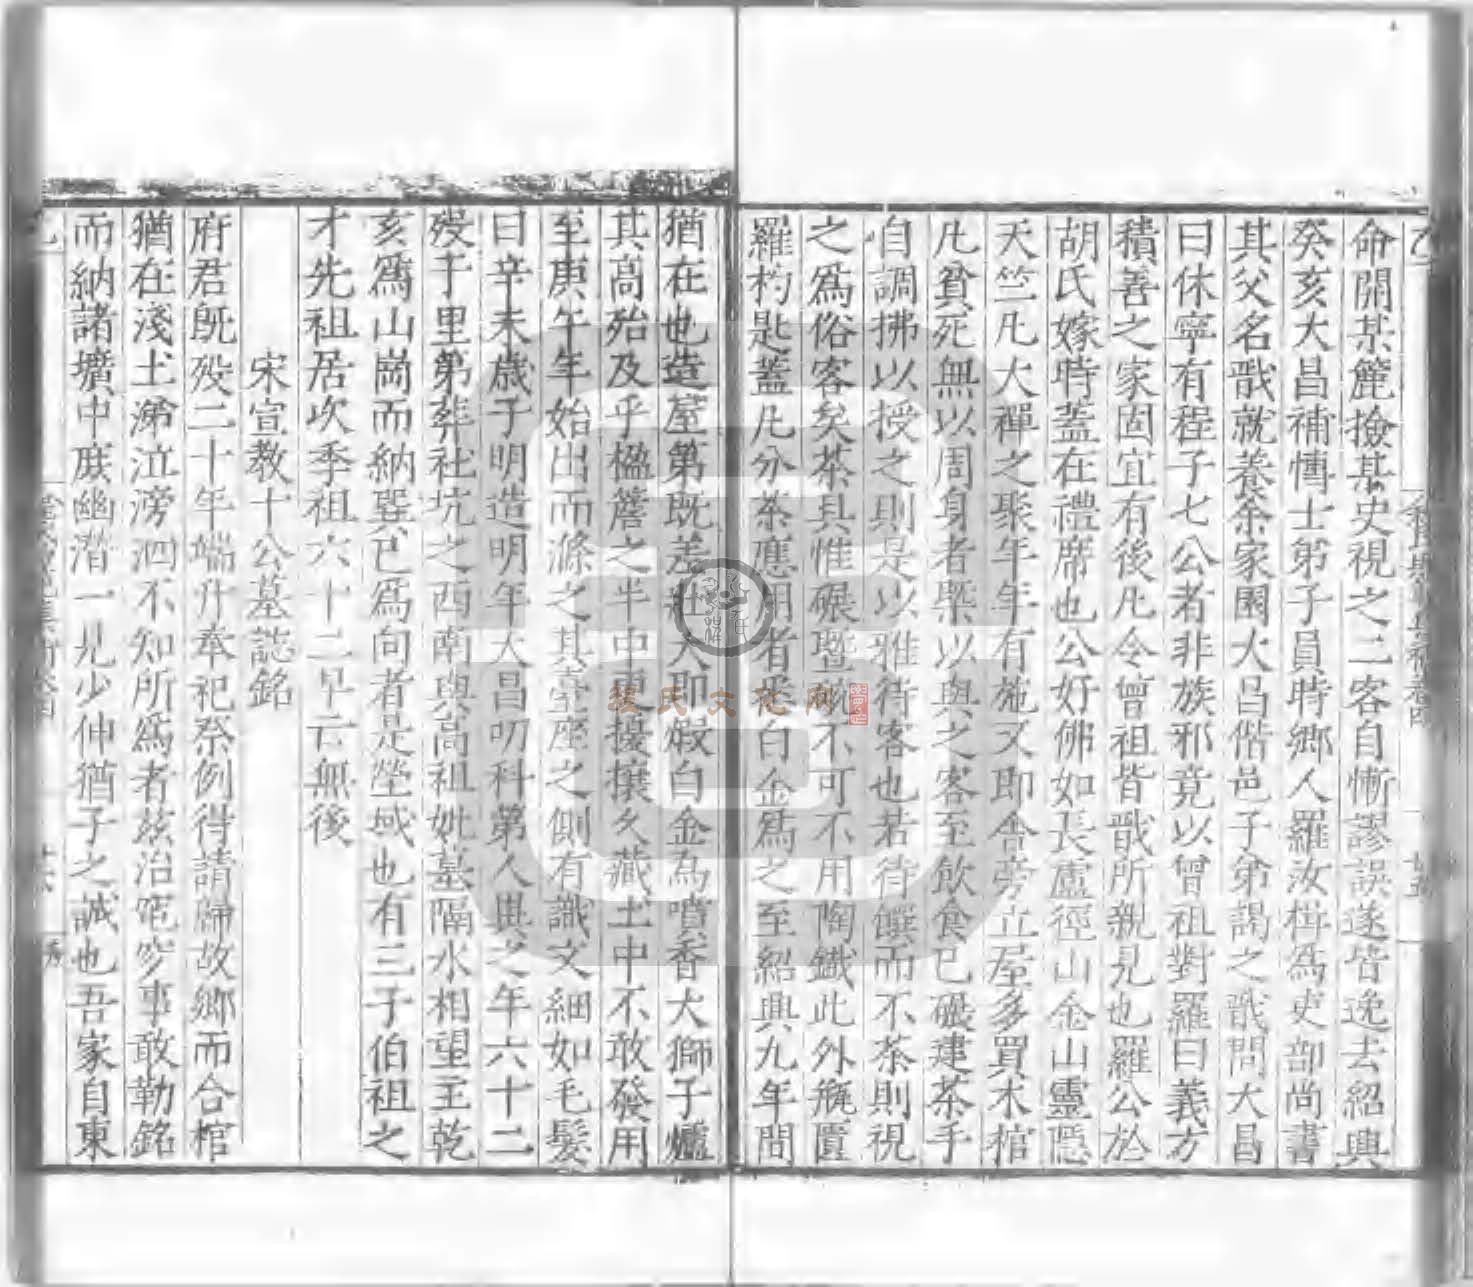 命開某簏撿某史視之二客自慚謬誤遂皆逸去紹興
癸亥大昌補愽士弟子員時鄉人羅汝楫為吏部尚書
其父名戩就養余家園大昌偕邑子弟謁之戩問大昌
曰休寧有程子七公者非族邪竟以曾祖對羅曰義方
積善之家固宜有後凡令曾祖皆戩所親見也羅公於
胡氏嫁時蓋在禮席也公好佛如長盧徑山金山靈隱
天竺凡大禪之聚年年有施又即舎旁立屋多買木棺
凡貧死無以周身者槩以與之客至飲食已碾建茶手
自調拂以授之則是以雅待客也若待饌而不茶則視
之為俗客矣茶具惟碾不可不用陶鐵此外瓶匱
羅杓匙蓋凡分茶應用者悉白金為之至紹興九年間
猶在也造屋第既差壯大即煅白金為噴香大獅子爐
其高殆及乎楹簷之半中更擾攘久藏土中不敢發用
至庚午年始出而滌之其臺座之側有識文細如毛髮
曰辛未歲子明造明年大昌叨科第人異之年六十二
殁千里第葬社坑之西南與高祖妣墓隔水相望主乾
亥為山崗而納巽巳為向者是塋域也有三子伯祖之
才先祖居次季祖六十二早亡無後
宋宣教十公墓誌銘
府君既殁二十年端升奉祀祭例得請歸故鄉而合棺
猶在淺土涕泣滂泗不知所為者茲治窀穸事敢勒銘
而納諸壙中庶幽潛一見少伸猶子之誠也吾家自東